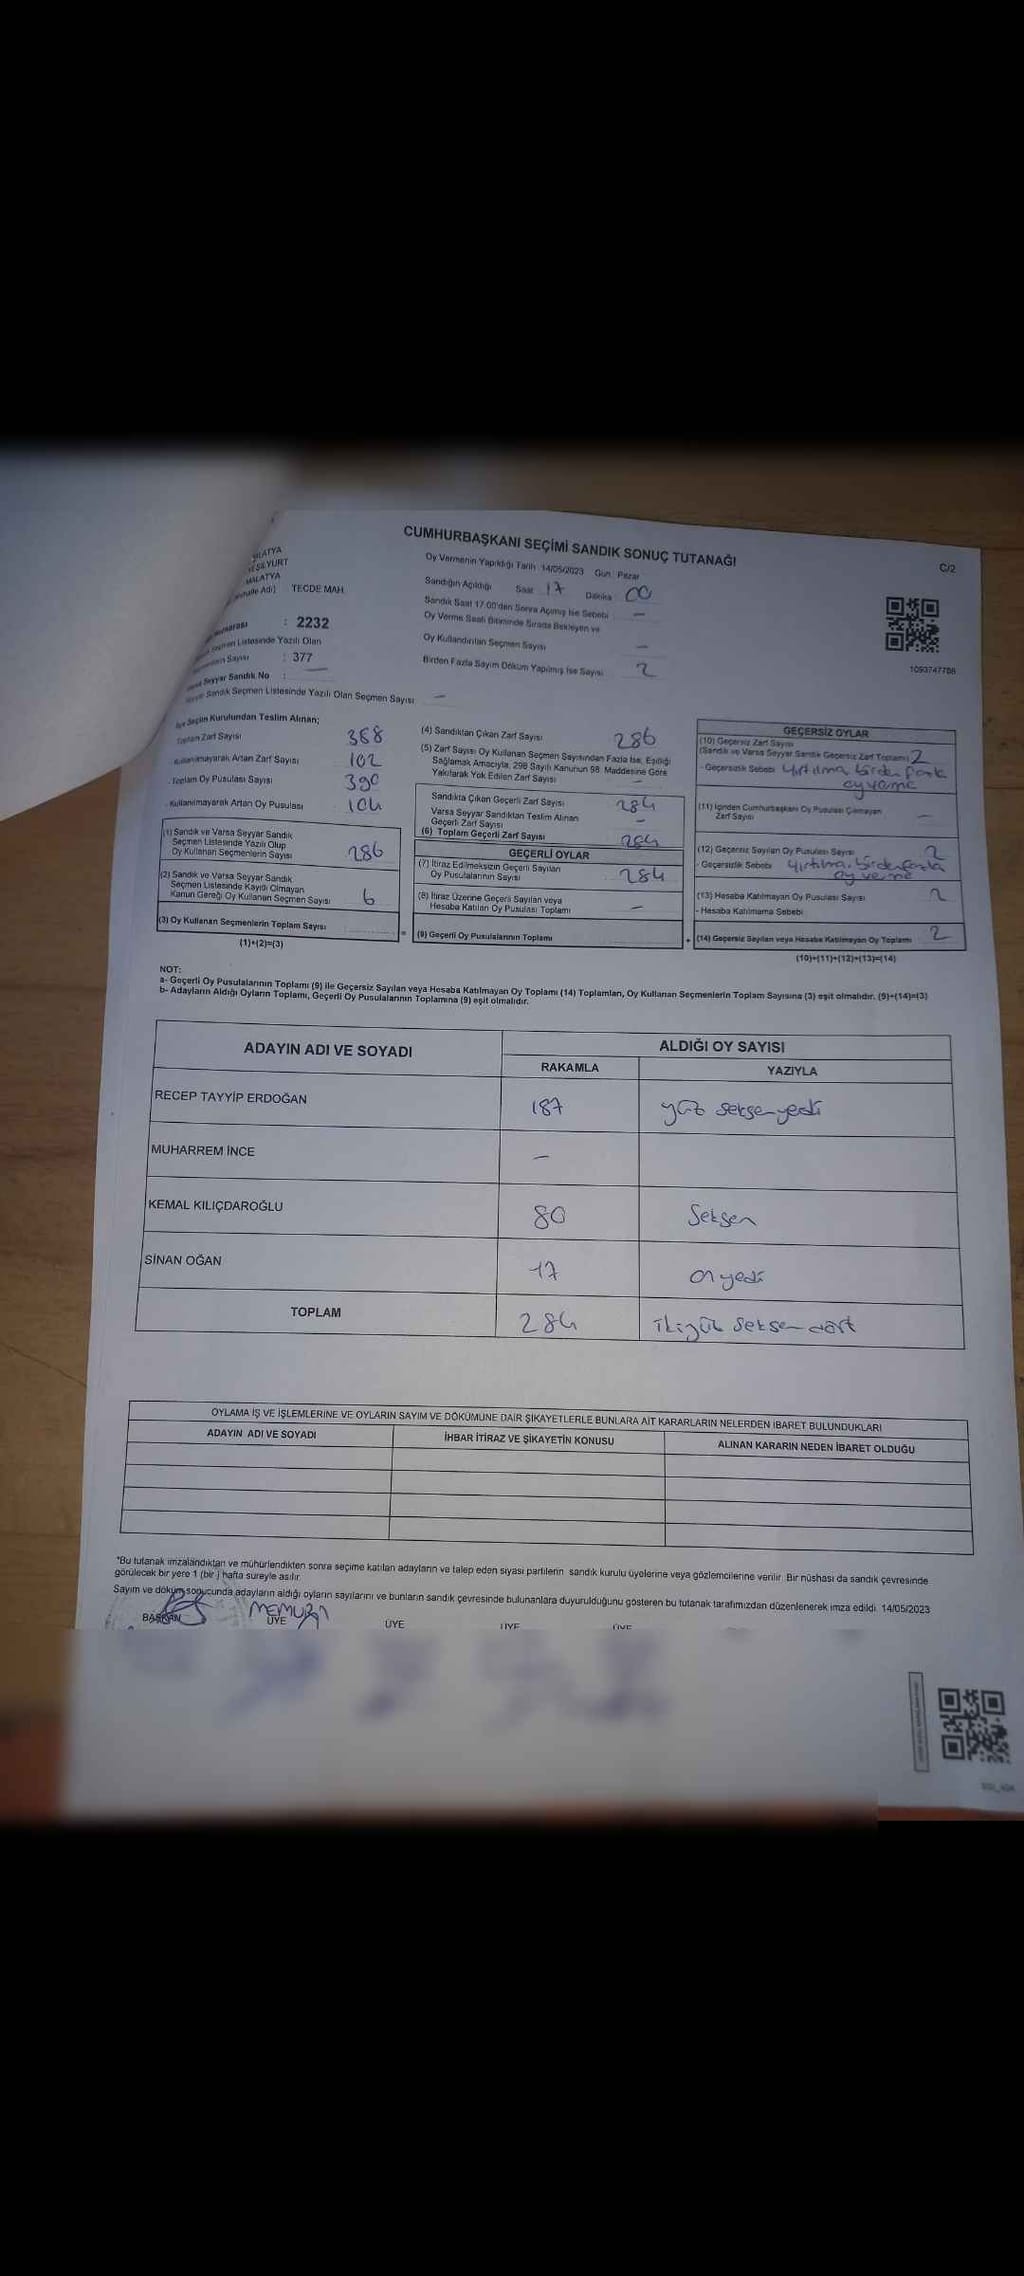 CUMHURBAŞKANI SEÇİMİ SANDIK SONUÇ TUTANAĞI
C/2
MALATYA
YEŞİLYURT
MALATYA
TECDE MAH.
: 2232
Seçmen Listesinde Yazılı Olan
Sayısı : 377
Seyyar Sandık No :
Sandık Seçmen Listesinde Yazılı Olan Seçmen Sayısı -
Oy Vermenin Yapıldığı Tarih :14/05/2023 Gün : Pazar
Sandığın Açıldığı Saat 17 Dakika 00
Sandık Saat 17.00'den Sonra Açılmış İse Sebebi -
Oy Verme Saati Bitiminde Sırada Bekleyen ve
Oy Kullandırılan Seçmen Sayısı -
Birden Fazla Sayım Döküm Yapılmış İse Sayısı 2
1093747788
İlçe Seçim Kurulundan Teslim Alınan;
Toplam Zarf Sayısı 388
Kullanılmayarak Artan Zarf Sayısı 102
- Toplam Oy Pusulası Sayısı 390
- Kullanılmayarak Artan Oy Pusulası 104
(1) Sandık ve Varsa Seyyar Sandık
Seçmen Listesinde Yazılı Olup
Oy Kullanan Seçmenlerin Sayısı 286
(2) Sandık ve Varsa Seyyar Sandık
Seçmen Listesinde Kayıtlı Olmayan
Kanun Gereği Oy Kullanan Seçmen Sayısı 6
(3) Oy Kullanan Seçmenlerin Toplam Sayısı
(1)+(2)=(3)
(4) Sandıktan Çıkan Zarf Sayısı 286
(5) Zarf Sayısı Oy Kullanan Seçmen Sayısından Fazla İse, Eşitliği
Sağlamak Amacıyla, 298 Sayılı Kanunun 98. Maddesine Göre
Yakılarak Yok Edilen Zarf Sayısı -
Sandıkta Çıkan Geçerli Zarf Sayısı 284
Varsa Seyyar Sandıktan Teslim Alınan
Geçerli Zarf Sayısı -
(6) Toplam Geçerli Zarf Sayısı 284
GEÇERLİ OYLAR
(7) İtiraz Edilmeksizin Geçerli Sayılan
Oy Pusulalarının Sayısı 284
(8) İtiraz Üzerine Geçerli Sayılan veya
Hesaba Katılan Oy Pusulası Toplamı -
(9) Geçerli Oy Pusulalarının Toplamı
GEÇERSİZ OYLAR
(10) Geçersiz Zarf Sayısı
(Sandık ve Varsa Seyyar Sandık Geçersiz Zarf Toplamı) 2
- Geçersizlik Sebebi yırtılma, birden fazla
oy verme
(11) İçinden Cumhurbaşkanı Oy Pusulası Çıkmayan
Zarf Sayısı -
(12) Geçersiz Sayılan Oy Pusulası Sayısı 2
- Geçersizlik Sebebi yırtılma, birden fazla
oy verme
(13) Hesaba Katılmayan Oy Pusulası Sayısı 2
- Hesaba Katılmama Sebebi
(14) Geçersiz Sayılan veya Hesaba Katılmayan Oy Toplamı 2
(10)+(11)+(12)+(13)=(14)
NOT:
a- Geçerli Oy Pusulalarının Toplamı (9) ile Geçersiz Sayılan veya Hesaba Katılmayan Oy Toplamı (14) Toplamları, Oy Kullanan Seçmenlerin Toplam Sayısına (3) eşit olmalıdır. (9)+(14)=(3)
b- Adayların Aldığı Oyların Toplamı, Geçerli Oy Pusulalarının Toplamına (9) eşit olmalıdır.
ADAYIN ADI VE SOYADI
ALDIĞI OY SAYISI
RAKAMLA YAZIYLA
RECEP TAYYİP ERDOĞAN 187 yüz seksen yedi
MUHARREM İNCE -
KEMAL KILIÇDAROĞLU 80 Seksen
SİNAN OĞAN 17 on yedi
TOPLAM 284 ikiyüz seksen dört
OYLAMA İŞ VE İŞLEMLERİNE VE OYLARIN SAYIM VE DÖKÜMÜNE DAİR ŞİKAYETLERLE BUNLARA AİT KARARLARIN NELERDEN İBARET BULUNDUKLARI
ADAYIN ADI VE SOYADI İHBAR İTİRAZ VE ŞİKAYETİN KONUSU ALINAN KARARIN NEDEN İBARET OLDUĞU
*Bu tutanak imzalandıktan ve mühürlendikten sonra seçime katılan adayların ve talep eden siyasi partilerin sandık kurulu üyelerine veya gözlemcilerine verilir. Bir nüshası da sandık çevresinde
görülecek bir yere 1 (bir ) hafta süreyle asılır.
Sayım ve döküm sonucunda adayların aldığı oyların sayılarını ve bunların sandık çevresinde bulunanlara duyurulduğunu gösteren bu tutanak tarafımızdan düzenlenerek imza edildi. 14/05/2023
BAŞKAN MEMUR ÜYE ÜYE ÜYE ÜYE